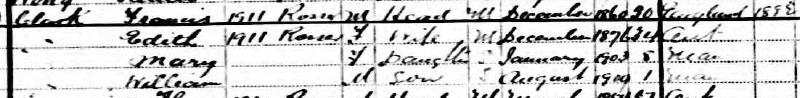 Clark Francis 1911 Rosser M Head M December 1860 50 England 1898
" Edith 1911 Rosser F Wife M December 1876 34 Ont
" Mary F Daughter S January 1903 8 Man
" William M Son S August 1909 1 Man